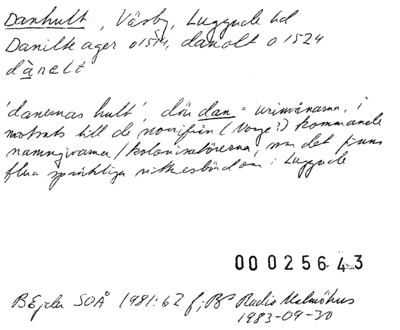 Danhult, Väsby, Luggude hd
Danilte ager o 1514, danolt o 1524
dànelt
'danernas hult', där dan = urinvånarna, i
motsats till de norrifrån (Norge?) kommande
namngivarna/kolonisatörerna, om det finns
flera språkliga vittnesbörd om i Luggude
000256.43
B Ejder SOÅ 1981:62 f; Radio Malmöhus
1983-09-30